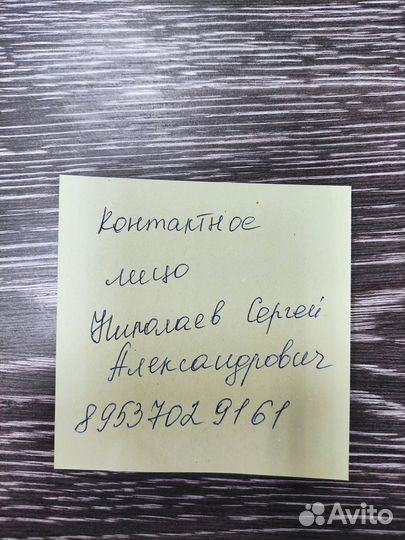 Контактное
лицо
Николаев Сергей
Александрович
89537029161
Avito